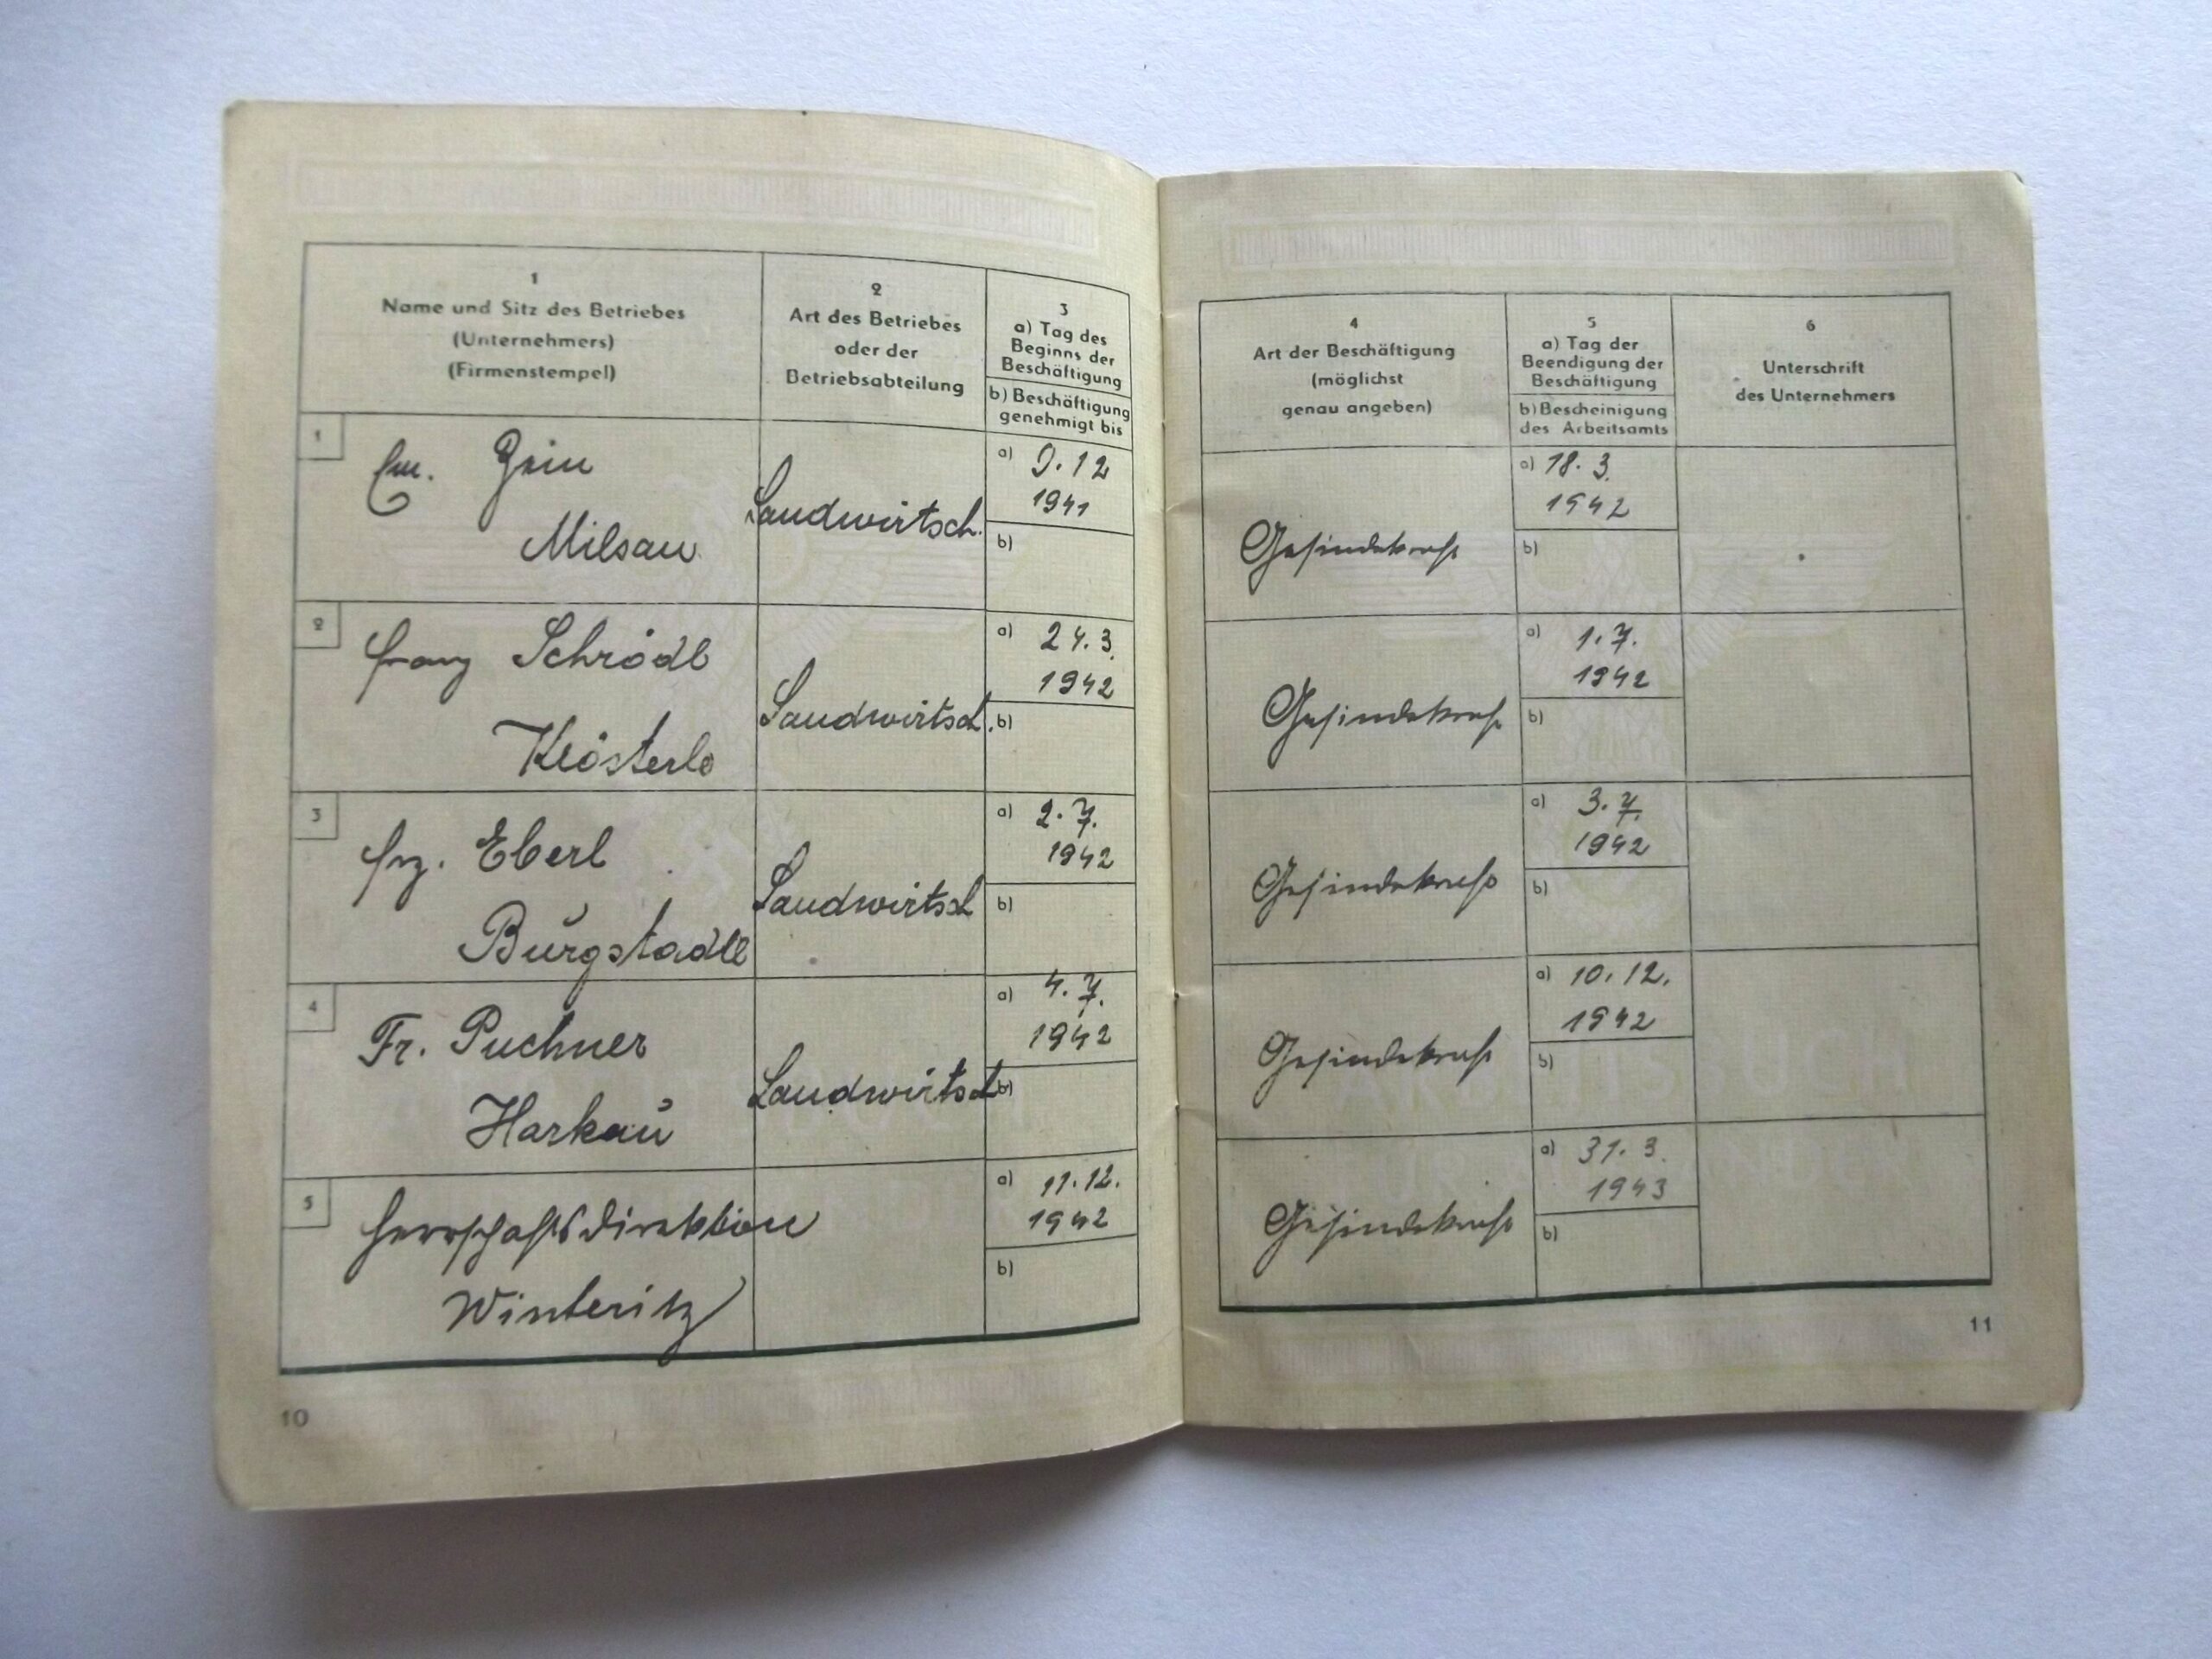 1
Name und Sitz des Betriebes
(Unternehmers)
(Firmenstempel)
2
Art des Betriebes
oder der
Betriebsabteilung
3
a) Tag des
Beginns der
Beschäftigung
b) Beschäftigung
genehmigt bis
1
Milsau
Landwirtsch.
a) 9.12
1941
b)
2
Franz Schrödl
Klösterle
Landwirtsch.
a) 24.3.
1942
b)
3
Frz. Eberl
Burgstadtl
Landwirtsch
a) 2.7.
1942
b)
4
Fr. Puchner
Harkau
Landwirtsch
a) 4.7.
1942
b)
5
Herrschaftsdirektion
Winteritz
a) 11.12.
1942
b)
10
4
Art der Beschäftigung
(möglichst
genau angeben)
5
a) Tag der
Beendigung der
Beschäftigung
b) Bescheinigung
des Arbeitsamts
6
Unterschrift
des Unternehmers
Gesindekraft
a) 18.3.
1942
b)
Gesindekraft
a) 1.7.
1942
b)
Gesindekraft
a) 3.7.
1942
b)
Gesindekraft
a) 10.12.
1942
b)
Gesindekraft
a) 31.3.
1943
b)
11